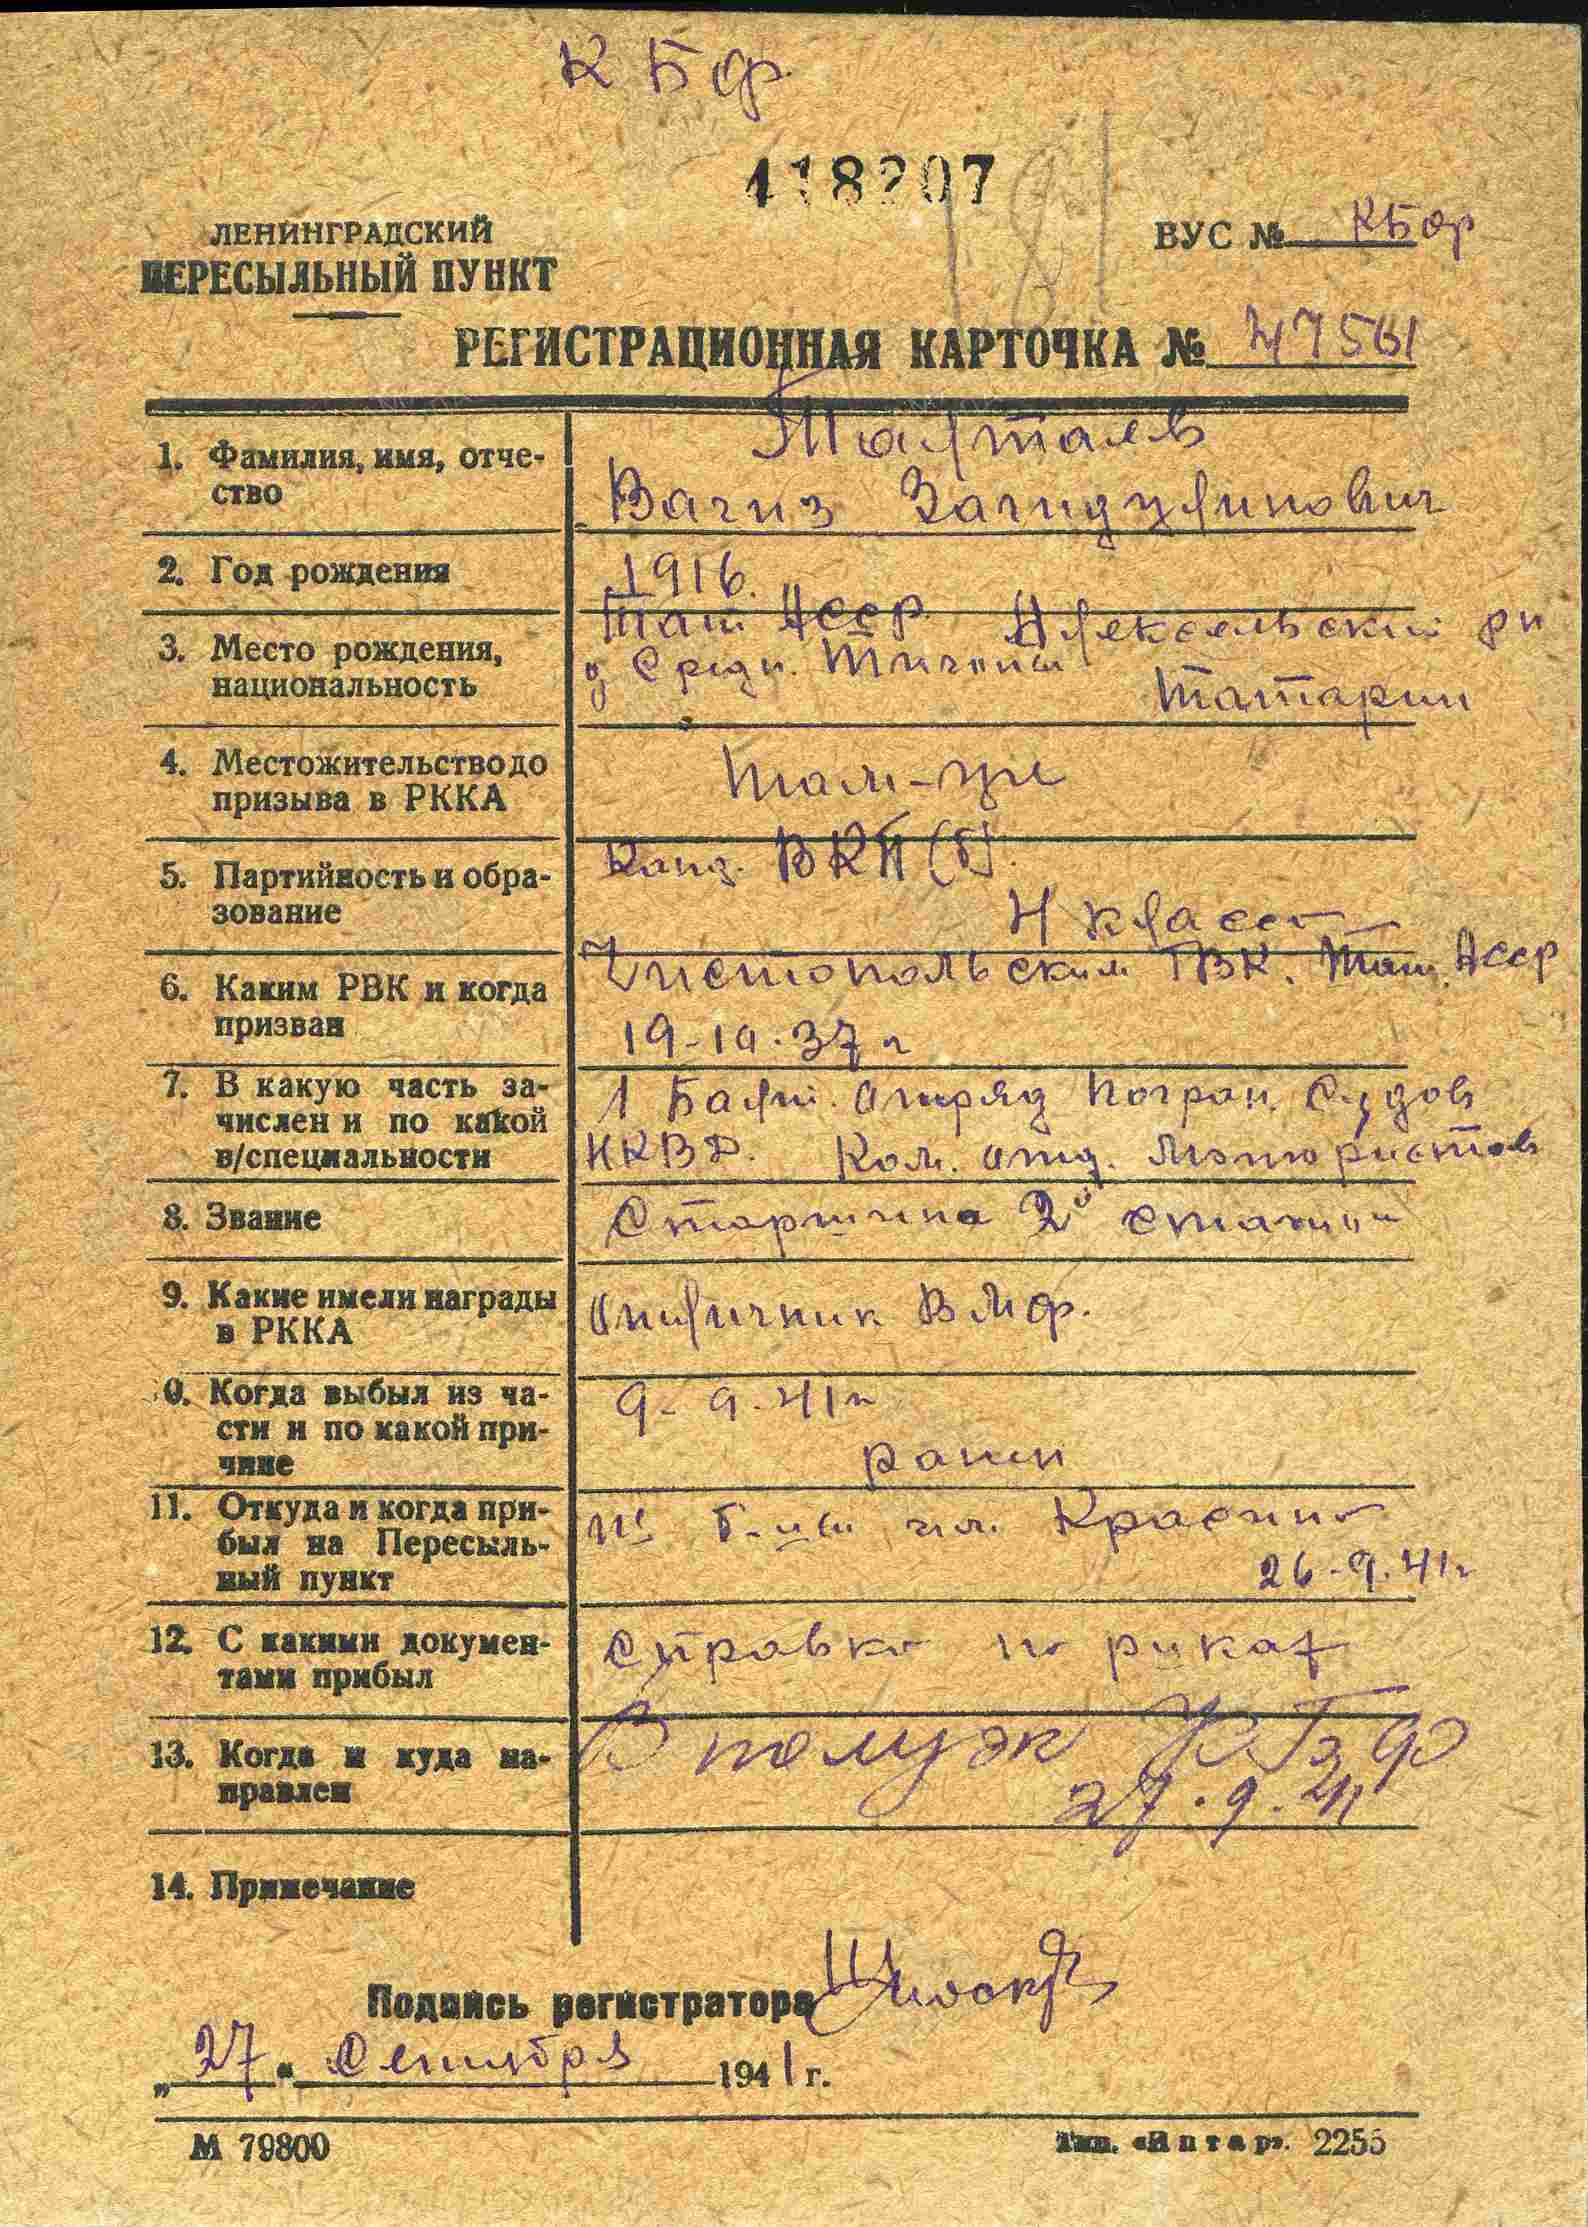 КБФ
418207
ЛЕНИНГРАДСКИЙ
ПЕРЕСЫЛЬНЫЙ ПУНКТ
ВУС № КБФ
181
РЕГИСТРАЦИОННАЯ КАРТОЧКА № 47561
1. Фамилия, имя, отче-
ство
Талтаев
Вагиз Загидулинович
2. Год рождения
1916.
3. Место рождения,
национальность
Тат АССР Алексеевский рн
д Средн. Тиганы
Татарин
4. Местожительство до
призыва в РККА
там-же
5. Партийность и обра-
зование
Канд. ВКП(б).
4 класса
6. Каким РВК и когда
призван
Чистопольским ГВК. Тат. АССР
19-10.37 г
7. В какую часть за-
числен и по какой
в/специальности
1 Балт. отряд погран. судов
НКВД. Ком. отд. мотористов
8. Звание
Старшина 2й статьи
9. Какие имели награды
в РККА
Отличник ВМФ.
0. Когда выбыл из ча-
сти и по какой при-
чине
9-9.41г
ранен
11. Откуда и когда при-
был на Пересыль-
ный пункт
из б-цы им. Красина
26-9.41г
12. С какими докумен-
тами прибыл
Справка на руках
13. Когда и куда на-
правлен
В полуэк КБФ
27.9.41
14. Примечание
Подпись регистратора
„27“ Сентября 1941 г.
М 79800
Тип. «Янтарь». 2255